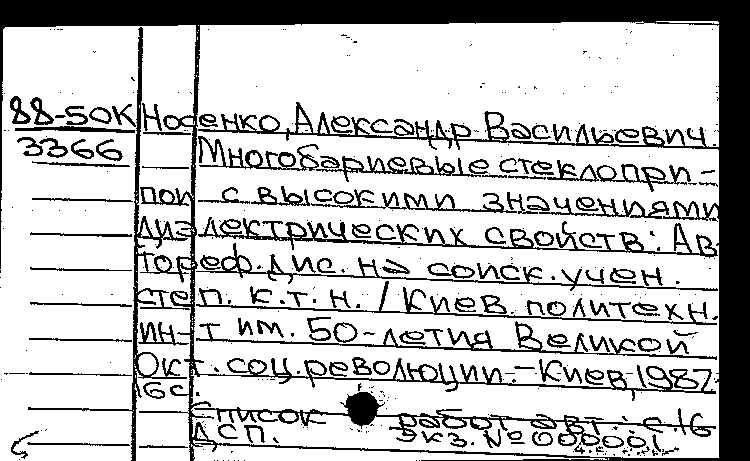 88-50К Носенко, Александр Васильевич.
3366 Многобариевые стеклопри-
пои с высокими значениями
диэлектрических свойств: Ав-
тореф. дис. на соиск. учен.
степ. к.т.н. / Киев. политехн.
ин-т им. 50-летия Великой
Окт. соц. революции. - Киев, 1987
16 с.
Список работ авт.: с. 16
ДСП. Экз. № 000001